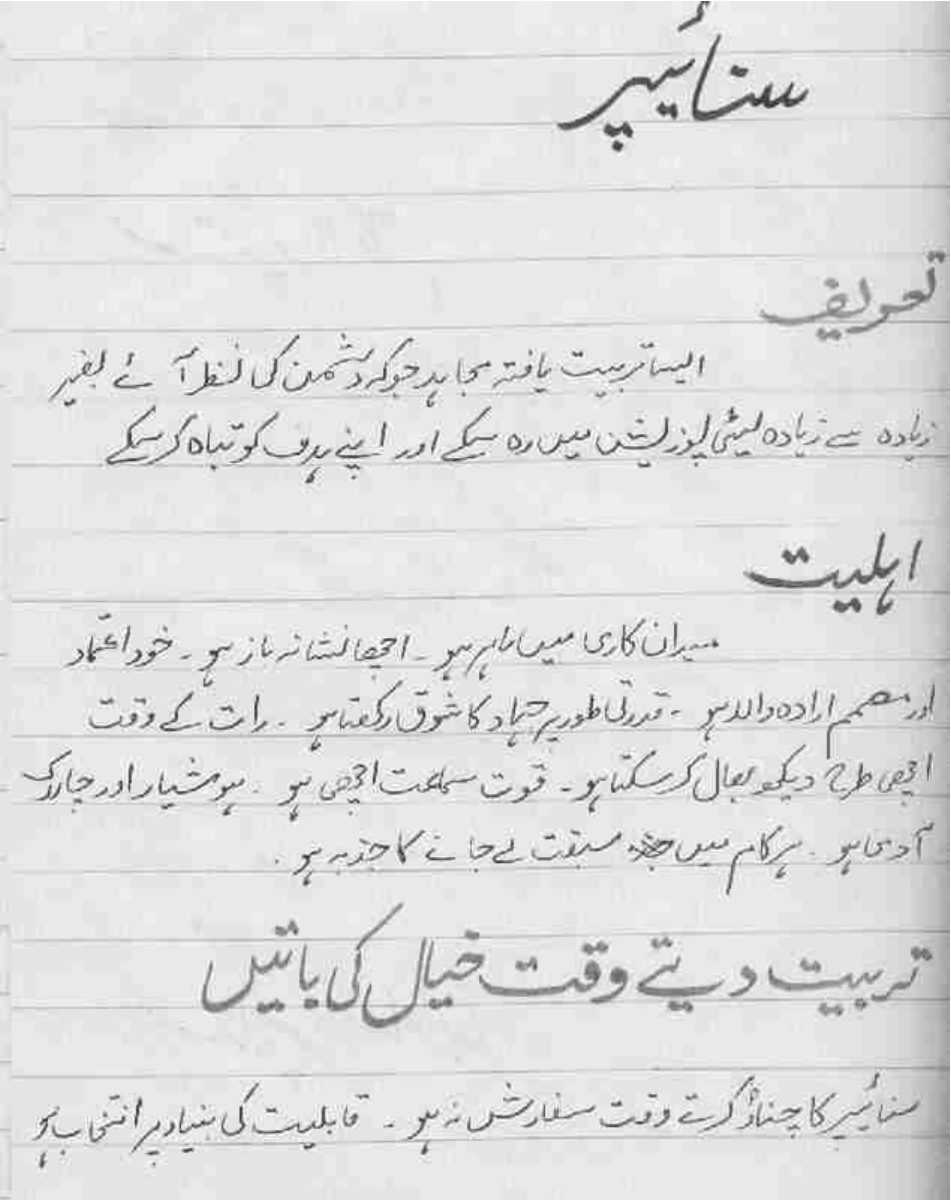 سنائیپر
تعریف
ایسا تربیت یافتہ مجاہد جو کہ دشمن کی نظر آئے بغیر
زیادہ سے زیادہ لمبی پوزیشن میں رہ سکے اور اپنے ہدف کو تباہ کر سکے
اہلیت
میدان کاری میں ماہر ہو ۔ اچھا نشانہ باز ہو ۔ خود اعتماد
اور مصمم ارادہ والا ہو ۔ قدرتی طور پر جہاد کا شوق رکھتا ہو ۔ رات کے وقت
اچھی طرح دیکھ بھال کر سکتا ہو ۔ قوت سماعت اچھی ہو ۔ ہوشیار اور چالاک
آدمی ہو ۔ ہر کام میں سبقت لے جانے کا جذبہ ہو ۔
تربیت دیتے وقت خیال کی باتیں
سنائیپر کا چناؤ کرتے وقت سفارش نہ ہو ۔ قابلیت کی بنیاد پر انتخاب ہو